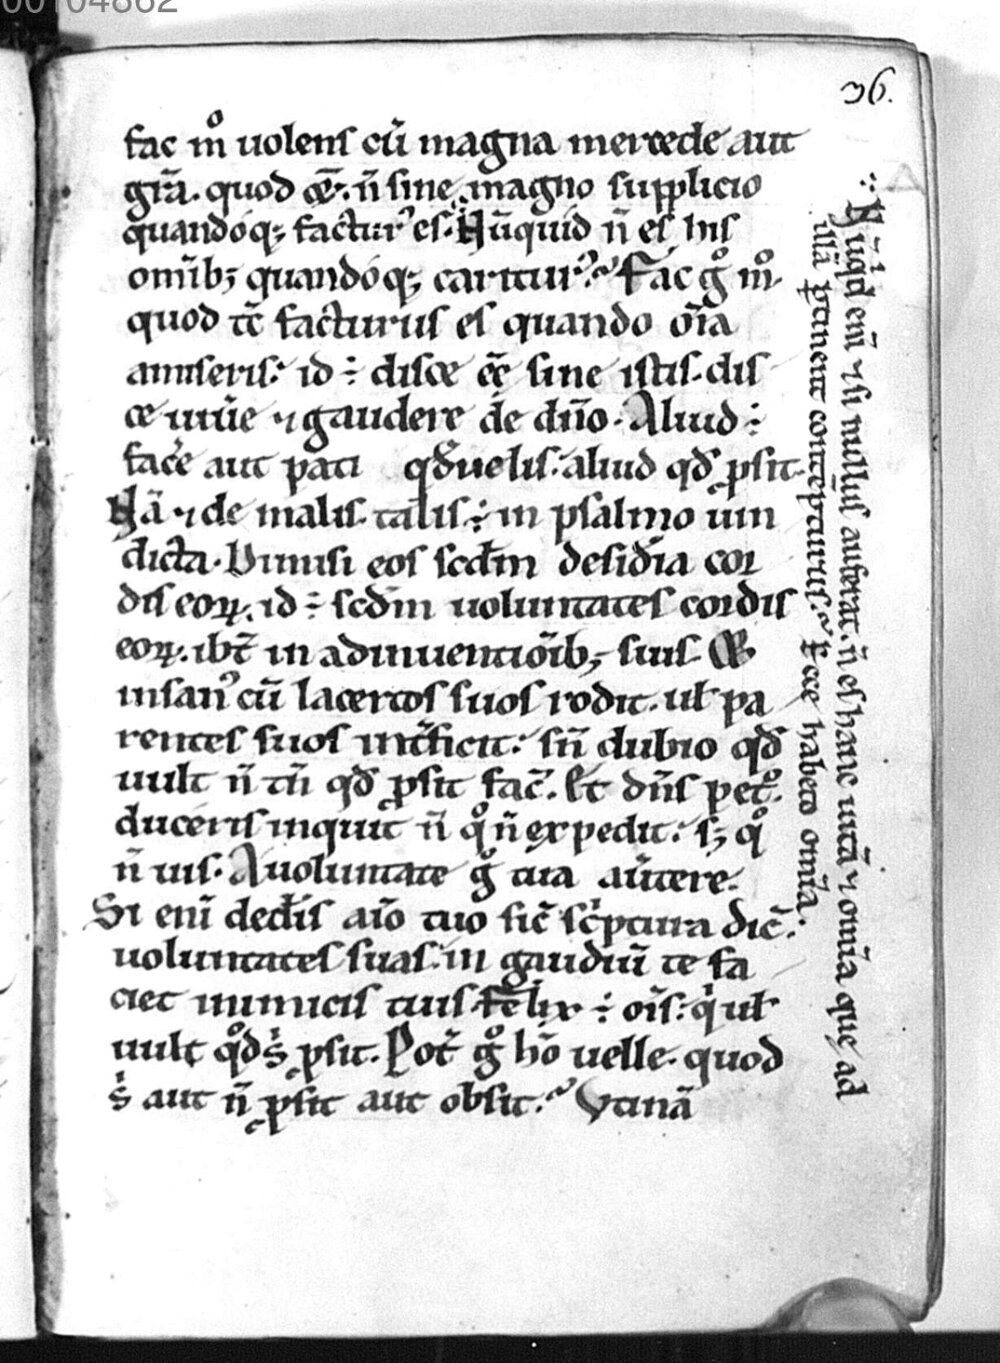 00104862
36.
fac m̊ uolens cū magna mercede aut
gr̄a. quod q̄. n̄ sine magno supplicio
quandoq; factur᾽ es. Nūquid n̄ es his
omīb; quandoq; caritur᾽? Fac g̊ m̊
quod tc̄ facturus es quando oīa
amiseris. id ÷ disce eē sine istis. dis
ce uiuē ⁊ gaudere de dn̄o. Aliud ÷
facē aut pati qđ uelis. aliud qđ ꝓsit.
Nā ⁊ de malis. talis ÷ in psalmo uin
dicta. Dimisi eos scd̄m desid̄ia cor
dis eoꝝ. id ÷ scd̄m uoluntates cordis
eoꝝ. ibt̄ in adinuentiōib; suis.
insan᾽ cū lacertos suos rodit. ul̵ pa
rentes suos int̄ficit. sn̄ dubio qđ
uult n̄ tn̄ qđ ꝓsit fac̄. Et dn̄s pet᾽.
duceris inquit n̄ q̊ n̄ expedit. s; q̊
n̄ uis. A uoluntate g̊ tua au̾tere.
Si eni dedis aīo tuo sic̄ sc̾ptura dic̄.
uoluntates suas. in gaudiū te fa
ciet inimicis tuis. Felix ÷ oīs. qi ul̵
uult qđ s ꝓsit. Pot̄ g̊ hō uelle. quod
s aut n̄ ꝓsit aut obsit. Utinā
Nūqd eni ⁊ si nullus auferat. n̄ es hanc uitā ⁊ omīa que ad
illā ꝑtinent contepturus. Ecce habeto omīa.